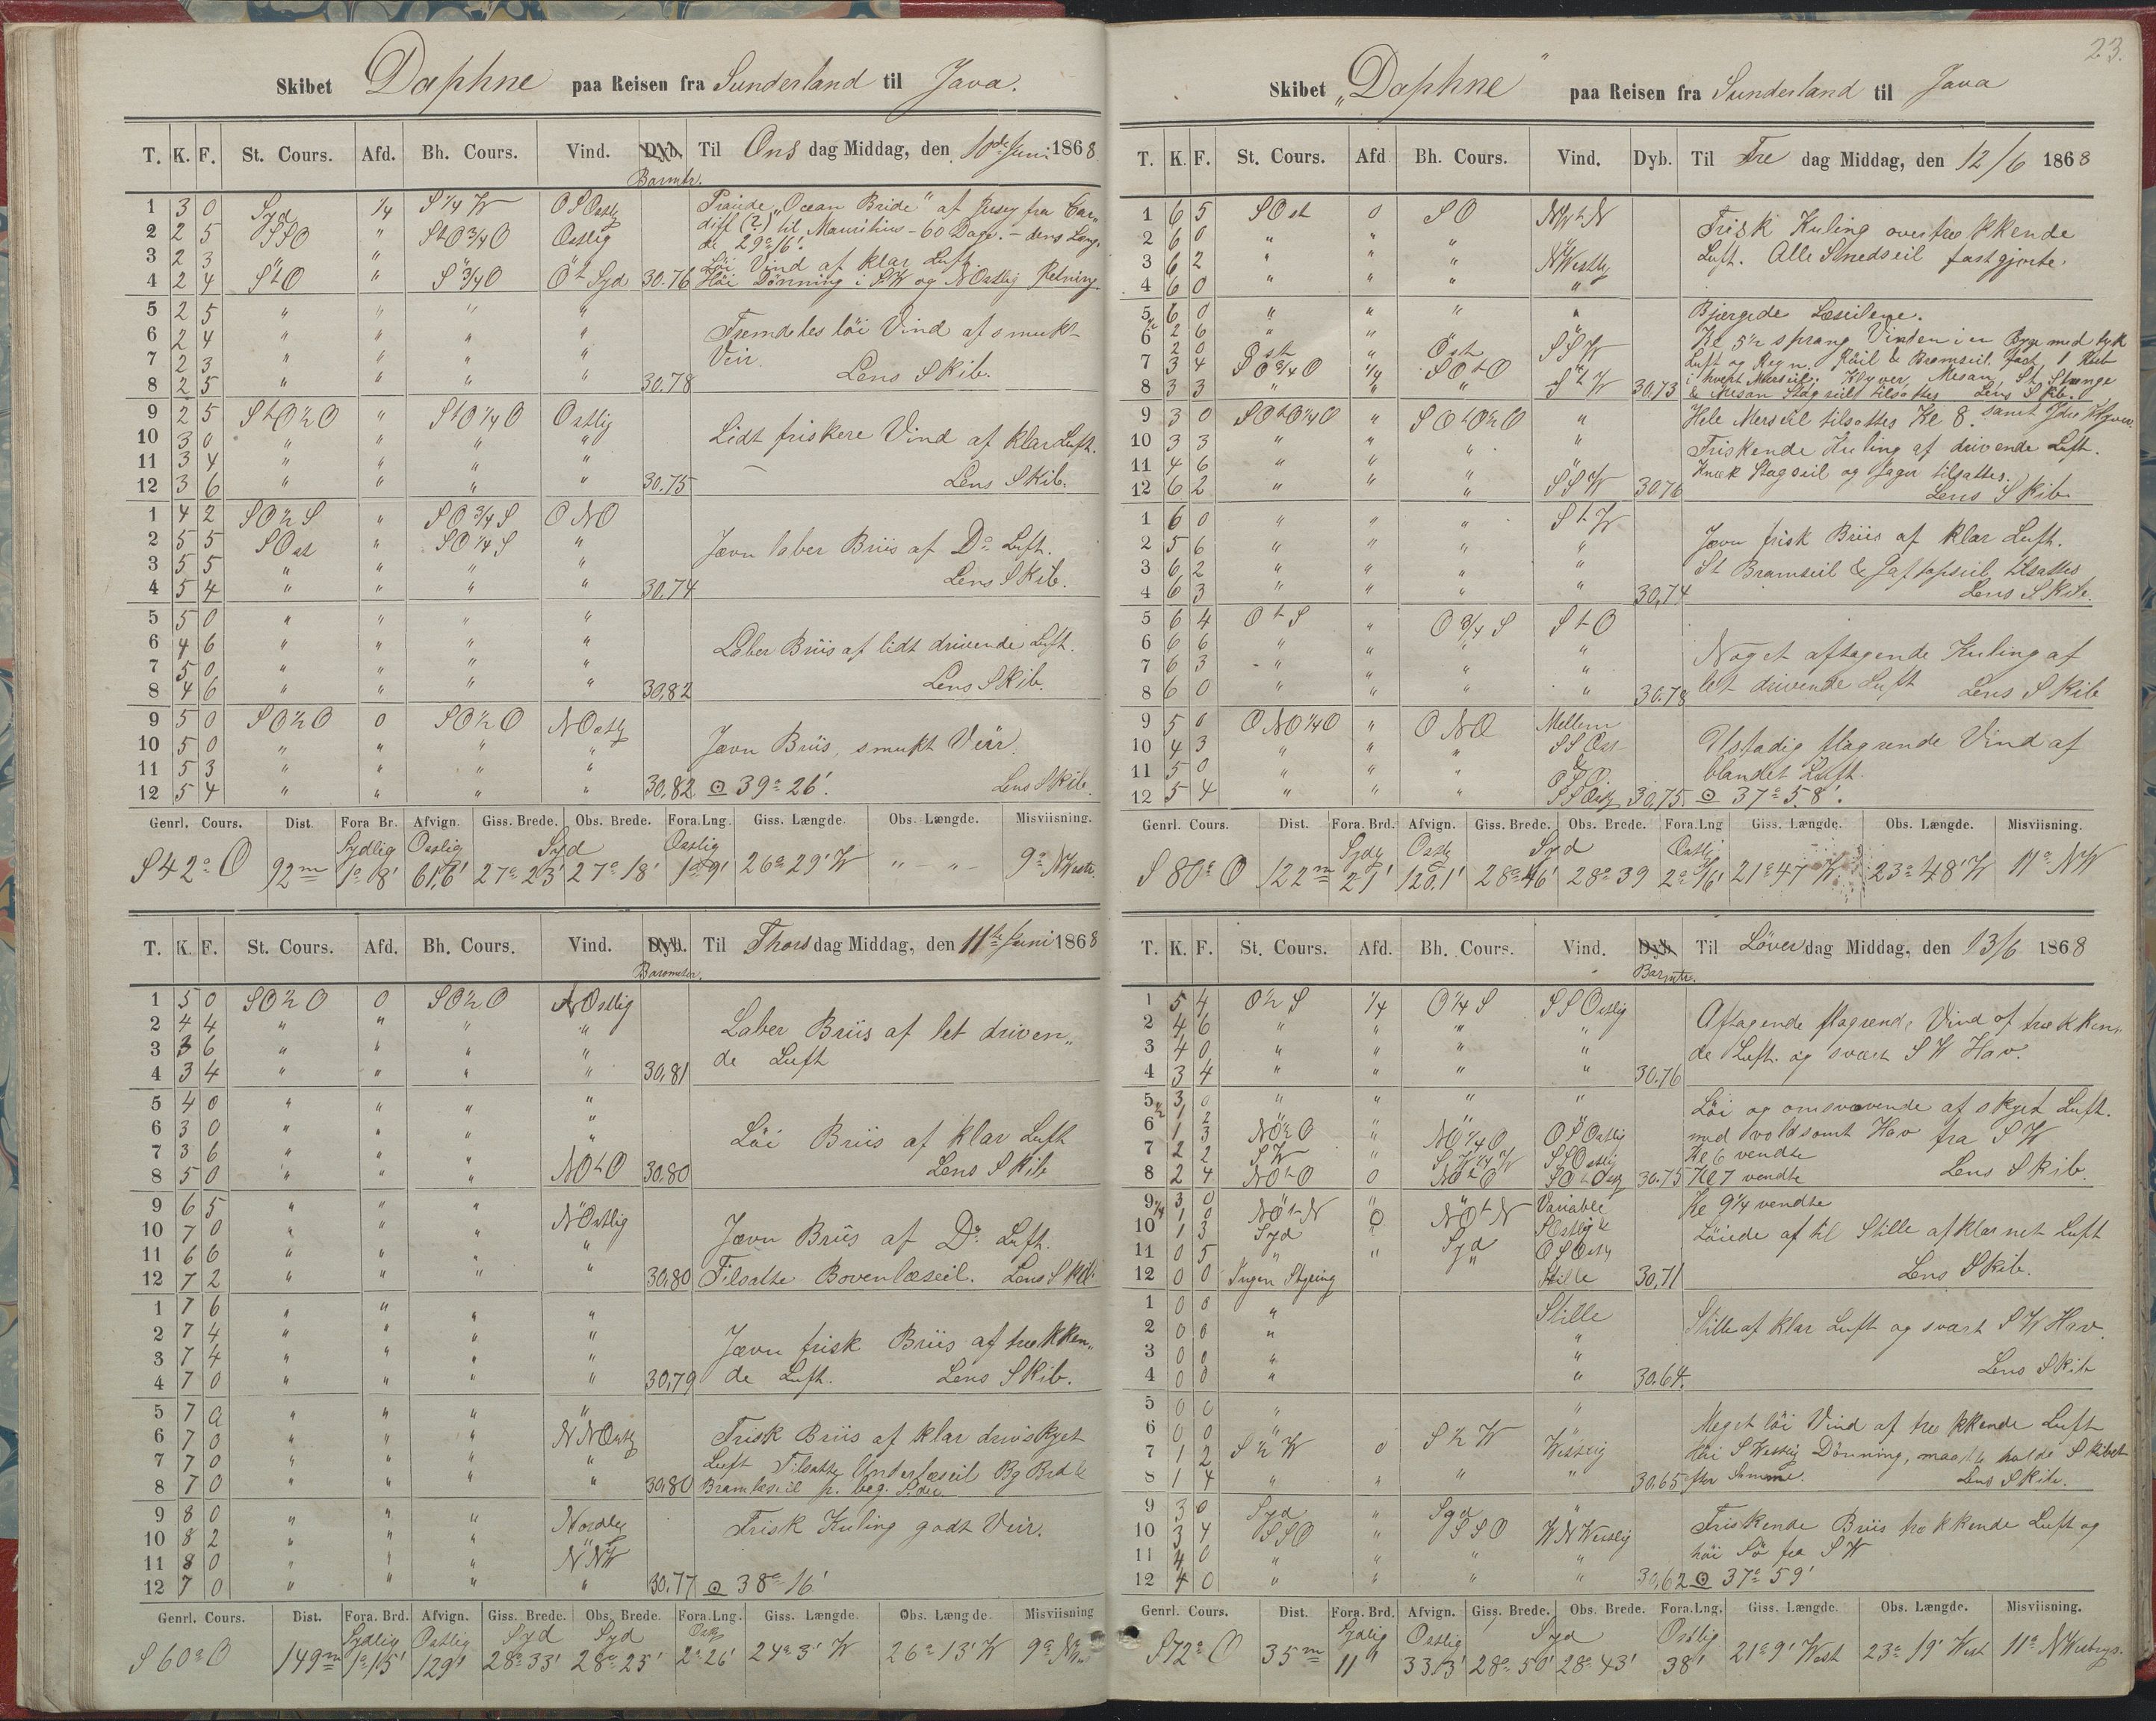 23.
Skibet Daphne paa Reisen fra Sunderland til Java.
T. K. F. St. Cours. Afd. Bh. Cours. Vind. Dyb. Barmtr. Til Ons dag Middag, den 10de Juni 1868
1 3 0 Syd 1/4 S 1/4 W OSOostlg Praiede „Ocean Bride" af Jersey fra Car„
2 2 5 SSO " StO 3/4 O Ostlig diff (?) til Mauritius - 60 Dage. - dens Læng„
3 2 3 " " " de 29° 16'.
Löi Vind af klar Luft.
4 2 4 StO " S 3/4 O Ot Syd 30.76 Höi Dönning i SW og NOstlig Retning
5 2 5 " " " "
6 2 4 " " " " Fremdeles löi Vind af smukt
7 2 3 " " " " Veir.
8 2 5 " " " " 30.78 Lens Skib.
9 2 5 StO½O " StO 1/4 O Ostlig
10 3 0 " " " " Lidt friskere Vind af klar Luft.
11 3 4 " " " "
12 3 6 " " " " 30.75 Lens Skib.
1 4 2 SO½S " SO 3/4 S ONO
2 5 5 SOst " SO 1/4 S " Jævn laber Briis af Do Luft.
3 5 5 " " " "
4 5 4 " " " " 30.74 Lens Skib.
5 5 0 " " " "
6 4 6 " " " " Laber Briis af lidt drivende Luft.
7 5 0 " " " "
8 4 6 " " " " 30,82 Lens Skib.
9 5 0 SO½O 0 SO½O NOstlg
10 5 0 " " " " Jævn Briis, smukt Veir.
11 5 3 " " " "
12 5 4 " " " " 30,82 ⊙ 39° 26'. Lens Skib.
Genrl. Cours. Dist. Fora Br. Afvign. Giss. Brede. Obs. Brede. Fora.Lng. Giss. Længde. Obs. Længde. Misviisning.
Sydlig Ostlig Syd Ostlig
S 42° O 92m 1° 8' 61,6' 27° 23' 27° 18' 1° 9' 26° 29' W " - " - 9° NWestr.
T. K. F. St. Cours. Afd. Bh. Cours. Vind. Dyb. Barometer. Til Thors dag Middag, den 11te Juni 1868
1 5 0 SO½O 0 SO½O NOstlig
2 4 4 " " " " Laber Briis af let driven„
3 3 6 " " " " de Luft
4 3 4 " " " " 30,81
5 4 0 " " " "
6 3 0 " " " " Löi Briis af klar Luft
7 3 6 " " "
8 5 0 " " " NOtO 30,80 Lens Skib
9 6 5 " " " NOstlig
10 7 0 " " " " Jævn Briis af Do Luft.
11 6 6 " " "
12 7 2 " " " " 30,80 Tilsatte Bovenlæseil. Lens Skib.
1 7 6 " " " "
2 7 4 " " " " Jævn frisk Briis af trækken„
3 7 4 " " " "
4 7 0 " " " " 30,79 de Luft. Lens Skib.
5 7 0 " " " "
6 7 0 " " " NNOstlg Frisk Briis af klar drivskyet
7 7 0 " " " " Luft Tilsatte Underlæseil Bg Brd &
8 7 0 " " " " 30,80 Bramlæseil p. beg. Sider
9 8 0 " " " Nordlg Frisk Kuling godt Veir.
10 8 2 " " " "
11 8 0 " " " NNW
12 7 0 " " " " 30,77 ⊙ 38° 16'
Genrl. Cours. Dist. Fora. Brd. Afvign. Giss. Brede. Obs. Brede. Fora.Lng. Giss. Længde. Obs. Længde. Misviisning
Sydlig Ostlig Syd Syd Ostlg
S 60° O 149m 1° 15' 129' 28° 33' 28° 25' 2° 26' 24° 3' W 26° 13' W 9°
Skibet „Daphne" paa Reisen fra Sunderland til Java
T. K. F. St. Cours. Afd Bh. Cours. Vind. Dyb. Til Fre dag Middag, den 12/6 1868
1 6 5 SOst 0 SO NWtN Frisk Kuling overtrækkende
2 6 0 " " " "
3 6 2 " " " NWestlg Luft. Alle Smedseil fastgjorte.
4 6 0 " " " "
5 6 0 " " " " Bjergede Læseilene.
½ 2 6 " " " Kl 5½ sprang Vinden i en Byge med tyk
6 2 0 Ost " Ost SSW Luft og Regn. Röil & Bramseil fast 1 Reb
7 3 4 SO 3/4 O 1/4 SOtO " i hvert Mersseil. Klyver, Mesan, St. Stænge
8 3 3 " " " StW 30,73 & Mesan Stagseil tilsattes Lens Skib.
9 3 0 SOtO 1/4 O " SOtO½O " Hele Mersseil tilsattes Kl 8. samt Ydre Klyver.
10 3 3 " " " " Friskende Kuling af drivende Luft.
11 4 6 " " " " Knæk Stagseil og Jager tilsattes.
12 6 2 " " " SSW 30.76 Lens Skib.
1 6 0 " " " StW
2 5 6 " " " " Jævn frisk Briis af klar Luft.
3 6 2 " " " " St Bramseil & Gaftopseil tilsattes
4 6 3 " " " " 30,74 Lens Skib.
5 6 4 OtS " O 3/4 S StO
6 6 6 " " " "
7 6 3 " " " " Noget aftagende Kuling af
8 6 0 " " " " 30.78 let drivende Luft Lens Skib
9 5 0 ONO 1/4 O " ONO Mellem
10 4 3 " " " SSOst Ustadig flagrende Vind af
11 5 0 " " " & OSO. blandet Luft.
12 5 4 " " SSOstlg 30,75 ⊙ 37° 58'.
Genrl. Cours. Dist. Fora. Brd. Afvign. Giss. Brede. Obs. Brede. Fora.Lng Giss. Længde. Obs. Længde. Misviisning.
Sydlg Ostlg Syd Ostlig
S 80° O 122m 21' 120,1' 28° 46' 28° 39 2° 16' 21° 47' W 23° 48' W 11° NW
T. K. F. St. Cours. Afd. Bh. Cours. Vind. Dyb. Barmtr. Til Löver dag Middag, den 13/6 1868
1 5 4 O½S 1/4 O 1/4 S SSOstlig
2 4 6 " " " " Aftagende flagrende Vind af trækken„
3 4 0 " " " " de Luft. og svært SW Hav.
4 3 4 " " " " 30.76
5 3 0 " " " " Löi og omsvævende af skyet Luft.
½ 1 2
6 1 3 NO½O " NO 1/4 O OSOstlig med voldsomt Hav fra SW
7 2 2 SW " SW 1/4 W SSOstlig Kl 6 vendte
8 2 4 NOtO 0 NOtO SOtOstlg 30.75 Kl 7 vendte Lens Skib.
9 3 0 NOtN " NOtN Variable Kl 9 1/4 vendte
1/4 1 0
10 1 3 Syd 0 Syd SOstlig & Löiede af til Stille af klarnet Luft
11 0 5 " " " OSOstlg
12 0 0 Ingen Styring Stille 30,71 Lens Skib.
1 0 0 " Stille
2 0 0 " " Stille af klar Luft og svært SW Hav.
3 0 0 " "
4 0 0 " " 30.64. Lens Skib
5 0 0 " " Meget löi Vind af trækkende Luft
6 0 0 "
7 1 2 S½W 0 S½W Westlig Höi SWestlig Dönning, maatte holde Skibet
8 1 4 " " " " 30,65 for Samme. Lens Skib.
9 3 0 Syd " Syd "
10 3 4 SSO " SSO WNWestlig Friskende Briis trækkende Luft og
11 4 0 " " " " höi Sö fra SW
12 4 0 " " " " 30,62 ⊙ 37° 59'
Genrl. Cours. Dist. Fora. Brd. Afvign. Giss. Brede. Obs. Brede. Fora.Lng. Giss. Længde. Obs. Længde. Misviisning.
Sydlig Ostlig Syd Ostlig
S 72° O 35m 11' 33,3' 28° 50' 28° 43' 38' 21° 9' West 23° 19' West 11°